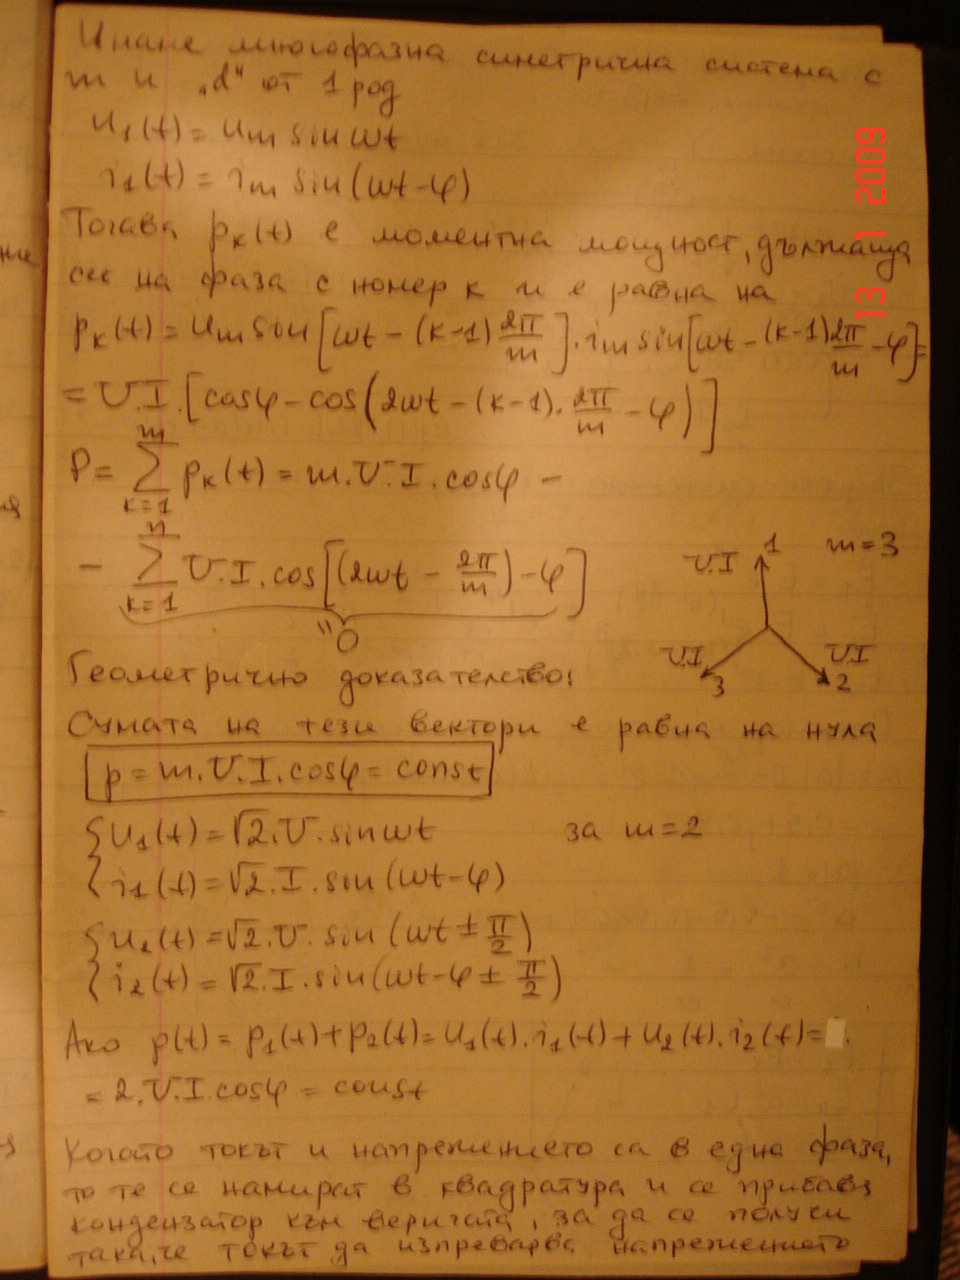 Имаме многофазна симетрична система с
m и „α“ от 1 род
u₁(t) = um sin ωt
i₁(t) = im sin(ωt-φ)
Тогава pк(t) е моментна мощност, дължаща
се на фаза с номер к и е равна на
pк(t) = um sin[ωt - (к-1) 2π/m] . im sin[ωt - (к-1) 2π/m - φ] =
= U.I.[cosφ - cos(2ωt - (к-1). 2π/m - φ)]
P = ∑ᵐₖ₌₁ pк(t) = m.U.I.cosφ -
- ∑ⁿₖ₌₁ U.I.cos[(2ωt - 2π/m) - φ]
"0
U.I 1 m=3
U.I 3 U.I 2
Геометрично доказателство:
Сумата на тези вектори е равна на нула
p = m.U.I.cosφ = const
u₁(t) = √2.U.sinωt за m=2
i₁(t) = √2.I.sin(ωt-φ)
u₂(t) = √2.U.sin(ωt ± π/2)
i₂(t) = √2.I.sin(ωt-φ ± π/2)
Ако p(t) = p₁(t)+p₂(t) = u₁(t).i₁(t) + u₂(t).i₂(t) =
= 2.U.I.cosφ = const
Когато токът и напрежението са в една фаза,
то те се намират в квадратура и се прибавя
кондензатор към веригата, за да се получи
така, че токът да изпреварва напрежението
13 1 2009